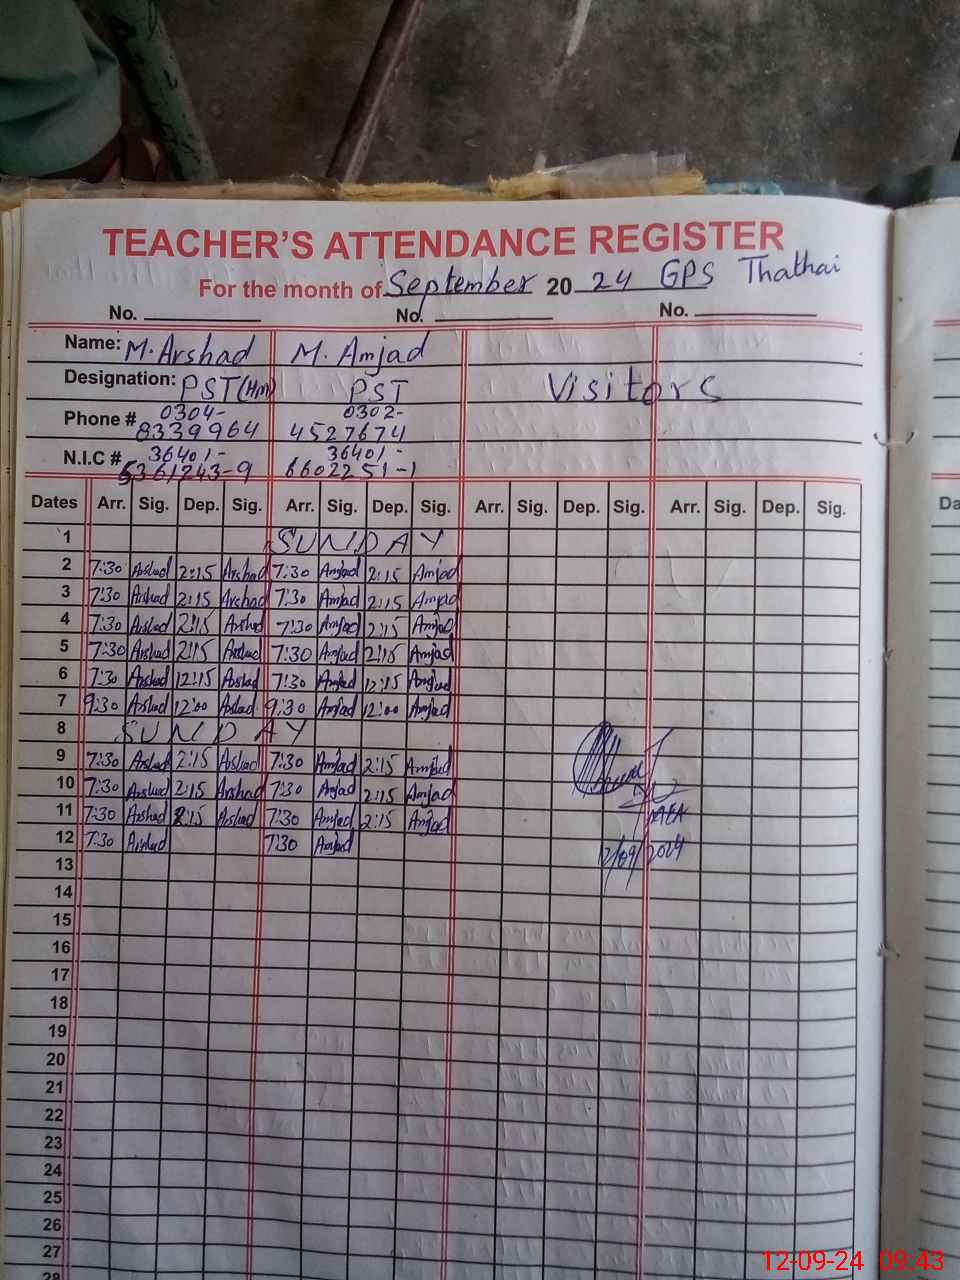 TEACHER'S ATTENDANCE REGISTER
For the month of September 20 24 GPS Thathai
No. No. No.
Name: M. Arshad M. Amjad
Designation: PST(HM) PST Visitors
Phone # 0304- 0302-
8339964 4527674
N.I.C # 36401- 36401-
5361243-9 6602251-1
Dates Arr. Sig. Dep. Sig. Arr. Sig. Dep. Sig. Arr. Sig. Dep. Sig. Arr. Sig. Dep. Sig. Da
1 SUNDAY
2 7:30 Arshad 2:15 Arshad 7:30 Amjad 2:15 Amjad
3 7:30 Arshad 2:15 Arshad 7:30 Amjad 2:15 Amjad
4 7:30 Arshad 2:15 Arshad 7:30 Amjad 2:15 Amjad
5 7:30 Arshad 2:15 Arshad 7:30 Amjad 2:15 Amjad
6 7:30 Arshad 12:15 Arshad 7:30 Amjad 12:15 Amjad
7 9:30 Arshad 12:00 Arshad 9:30 Amjad 12:00 Amjad
8 SUNDAY
9 7:30 Arshad 2:15 Arshad 7:30 Amjad 2:15 Amjad
10 7:30 Arshad 2:15 Arshad 7:30 Amjad 2:15 Amjad
11 7:30 Arshad 2:15 Arshad 7:30 Amjad 2:15 Amjad
12 7:30 Arshad 7:30 Amjad 12/09/2024
13
14
15
16
17
18
19
20
21
22
23
24
25
26
27
28
12-09-24 09:43